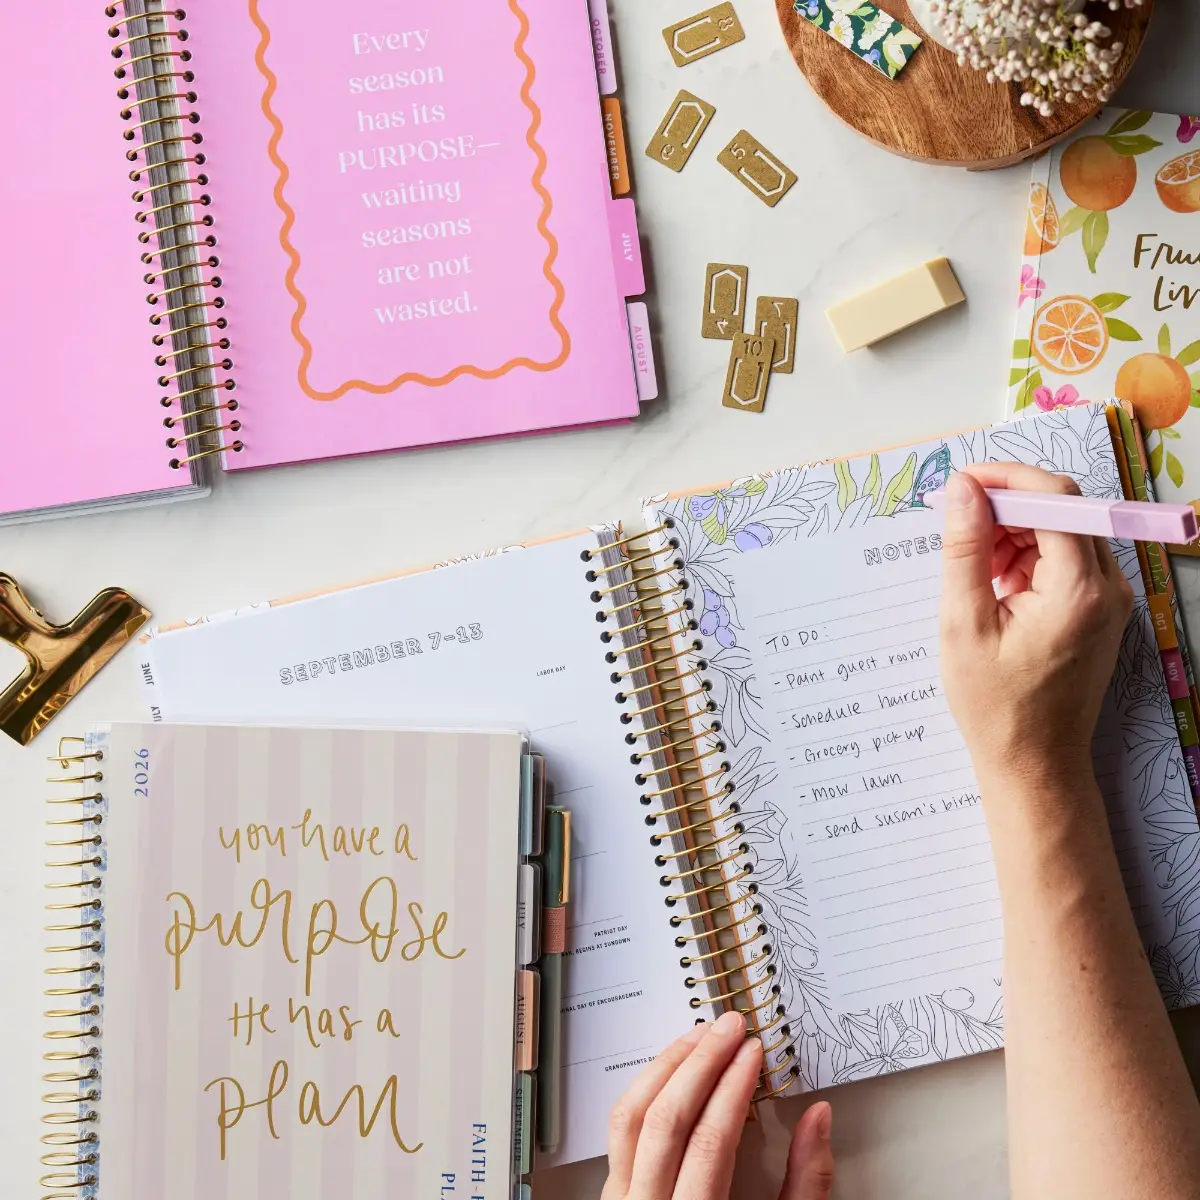 Every
season
has its
PURPOSE—
waiting
seasons
are not
wasted.
OCTOBER
NOVEMBER
JULY
AUGUST
8
6
5
4
7
10
SEPTEMBER 7-13
LABOR DAY
JUNE
PATRIOT DAY
BEGINS AT SUNDOWN
DAY OF ENCOURAGEMENT
GRANDPARENTS
NOTES
TO DO:
- Paint guest room
- Schedule haircut
- Grocery pick up
- mow lawn
- send susan's
OCT
NOV
DEC
NOTES
2026
you have a
purpose
He has a
plan
JULY
AUGUST
SEPTEMBER
FAITH-